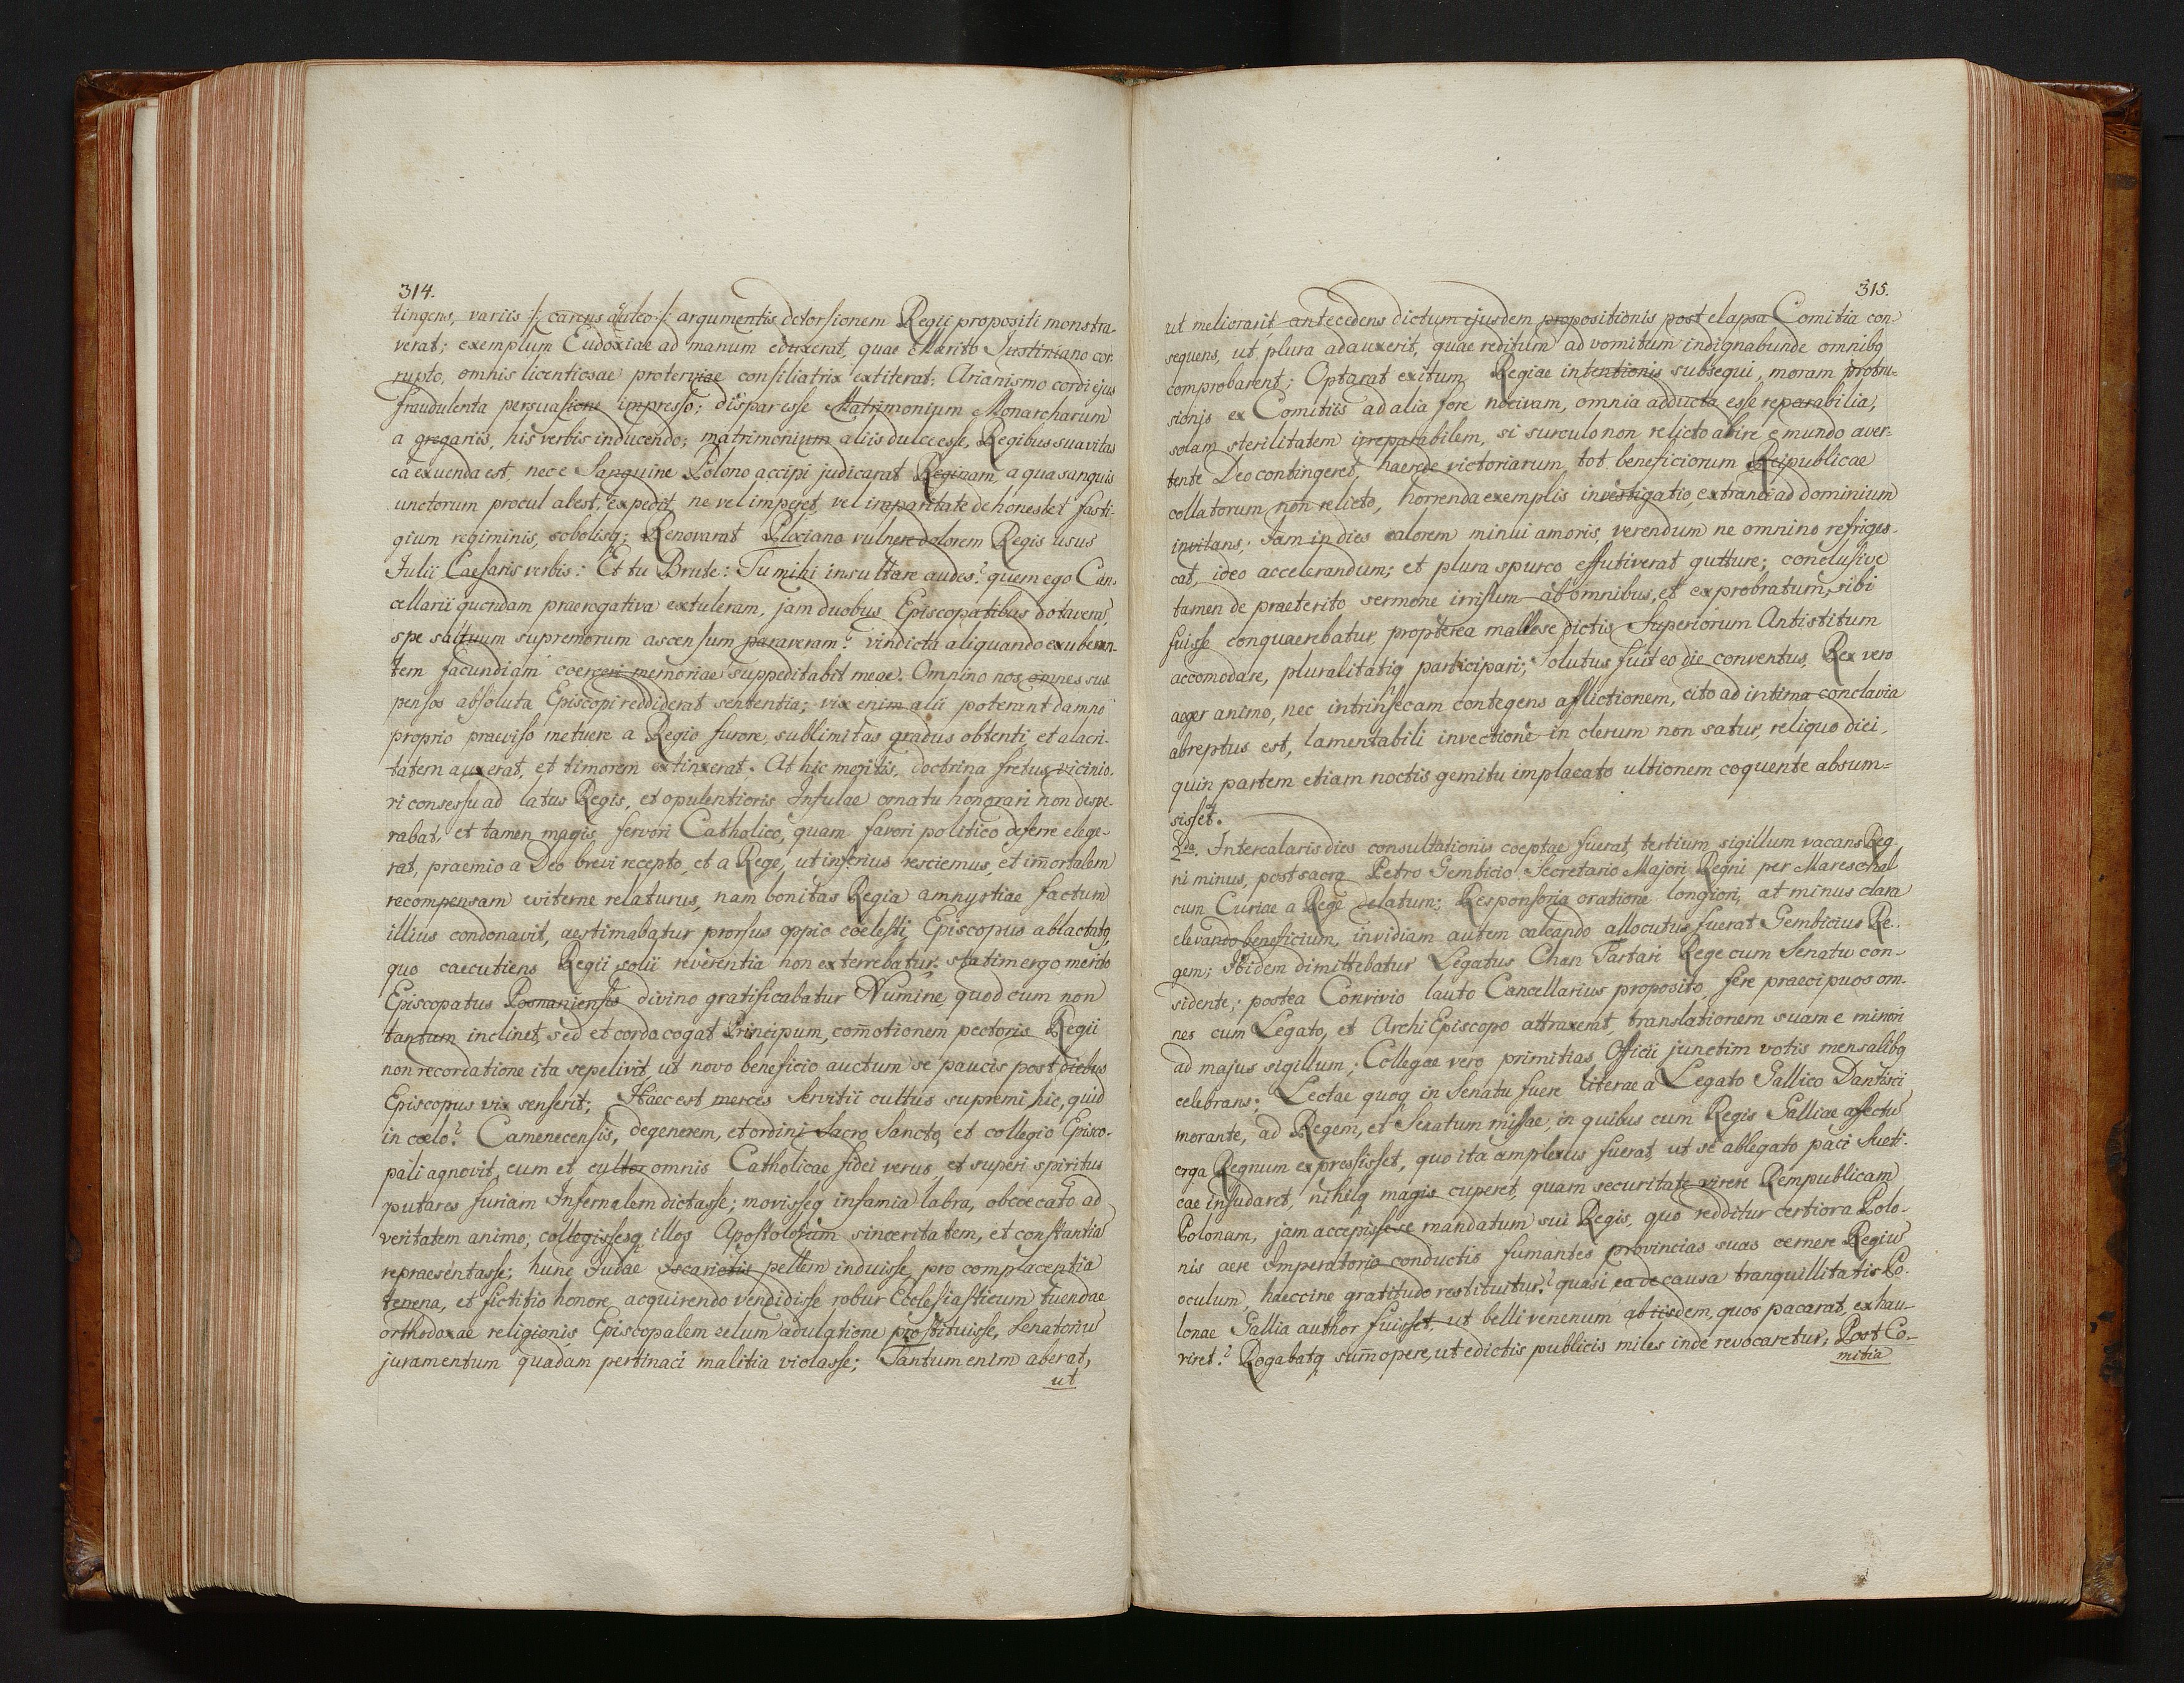 314.
tingens, variis /: carens aculeo :/ argumentis detorsionem Regii propositi monstra-
verat; exemplum Eudoxiae ad manum eduxerat, quae Marito Justiniano cor-
rupto, omnis licentiosae proterviae consiliatrix extiterat; Arianismo cordi ejus
fraudulenta persuasione impresso; dispar esse Matrimonium Monarcharum
a gregariis, his verbis inducendo; matrimonium aliis dulce esse, Regibus suavitas
ea exuenda est, nec e Sanguine Polono accipi judicarat Reginam, a qua sanguis
unctorum procul abest, expedit, ne vel imperet, vel imparitate dehonestet fasti-
gium regiminis, sobolisq; Renovarat Plociano vulnere dolorem Regis usus
Julii Caesaris verbis: Et tu Brute: Tu mihi insultare audes? quem ego Can-
cellarii quondam praerogativa extuleram, jam duobus Episcopatibus dotaveram,
spe saltuum supremorum ascensum paraveram? vindicta aliquando exuberan-
tem facundiam coerceri memoriae suppeditabit meae. Omnino nos omnes sus
pensos absoluta Episcopi reddiderat sententia; vix enim alii poterant damno
proprio praeviso metuere a Regio furore, sublimitas gradus obtenti, et alacri-
tatem auxerat, et timorem extinxerat. At hic meritis, doctrina fretus vicinio-
ri consessu ad latus Regis, et opulentioris Infulae ornatu honorari non despe-
rabat, et tamen magis fervori Catholico, quam favori politico deferre elege-
rat, praemio a Deo brevi recepto, et a Rege, ut inferius resciemus, et im̄ortalem
recompensam eviterne relaturus, nam bonitas Regia amnystiae factum
illius condonavit, aestimabatur prorsus oppio coelesti Episcopus ablactatq,
quo caecutiens Regii solii reverentia non exterrebatur; statim ergo merito
Episcopatus Posnaniensis divino gratificabatur Numine, quod cum non
tantum inclinet, sed et corda cogat Principum, com̄otionem pectoris Regii
non recordatione ita sepelivit, ut novo beneficio auctum se paucis post diebus
Episcopus vix senserit; Haec est merces Servitii cultus supremi hic, quid
in coelo? Camenecensis, degenerem, et ordini Sacro Sancto, et collegio Episco-
pali agnovit, eum et cultor omnis Catholicae fidei verus, et superi spiritus
putares furiam Infernalem dictasse; movisseq infamia labra, obcoecato ad
veritatem animo; collogissesq illos Apostolorum sinceritatem, et constantia
repraesentasse; hunc Judae Iscariotis pellem induisse, pro complacentia
terrena, et fictitio honore acquirendo vendidisse robur Ecclesiasticum tuendae
orthodoxae religionis Episcopalem zelum adulatione prostituisse, Senatoriu
juramentum quadam pertinaci malitia violasse; Tantum enim aberat,
ut
315.
ut meliorarit antecedens dictum ejusdem propositionis post elapsa Comitia con-
sequens, ut plura adauxerit, quae reditum ad vomitum indignabunde omnibq
comprobarent; Optarat exitum Regiae intentionis subsequi, moram protru-
sionis ex Comitiis ad alia fore nocivam, omnia adducta esse reparabilia,
solam sterilitatem ireparabilem, si surculo non relicto abire e mundo aver-
tente Deo contingeret, haerede victoriarum, tot beneficiorum Reipublicae
collatorum non relicto, horrenda exemplis investigatio, extranei ad dominium
invitans; Jam in dies calorem minui amoris, verendum ne omnino refriges-
cat, ideo accelerandum; et plura spurco effutiverat gutture; conclusive
tamen de praeterito sermone irrisum ab omnibus, et exprobratum, sibi
fuisse conquaerebatur, propterea malle se dictis Superiorum Antistitum
accomodare, pluralitatiq participari; Solutus fuit eo die conventus, Rex vero
aeger animo, nec intrinsecam contegens afflictionem, cito ad intima conclavia
abreptus est, lamentabili invectione in clerum non satur, reliquo diei,
quin partem etiam noctis gemitu implacato ultionem coquente absum=
sisset.
2da. Intercalaris dies consultationis coeptae fuerat, tertium sigillum vacans Reg-
ni minus, post sacra Petro Gembicio Secretario Majori Regni per Mareschal
cum Curiae a Rege delatum; Responsoria oratione longiori, at minus clara
elevando beneficium, invidiam autem calcando allocutus fuerat Gembicius Re-
gem; Ibidem dimittebatur Legatus Chan Tartari Rege cum Senatu con-
sidente; postea Convivio lauto Cancellarius proposito, fere praecipuos om-
nes cum Legato, et ArchiEpiscopo attraxerat, translationem suam e minori
ad majus sigillum; Collegae vero primitias Officii junctim votis mensalibq
celebrans; Lectae quoq in Senatu fuere literae a Legato Gallico Dantisci
morante, ad Regem, et Senatum missae, in quibus cum Regis Galliae affectu
erga Regnum expressisset, quo ita amplexus fuerat, ut se ablegato paci Sueti-
cae insudaret, nihilq magis cuperet, quam securitate virere Rempublicam
Polonam, jam accepisse se mandatum sui Regis, quo redditur certiora Polo-
nis aere Imperatorio conductis fumantes provincias suas cernere Regiu
oculum, haeccine gratitudo restituitur? quasi ea de causa tranquillitatis Po-
lonae Gallia author fuisset, ut belli venenum ab iisdem, quos pacarat, exhau-
riret? Rogabatq sum̄opere, ut edictis publicis miles inde revocaretur; Post Co-
mitia